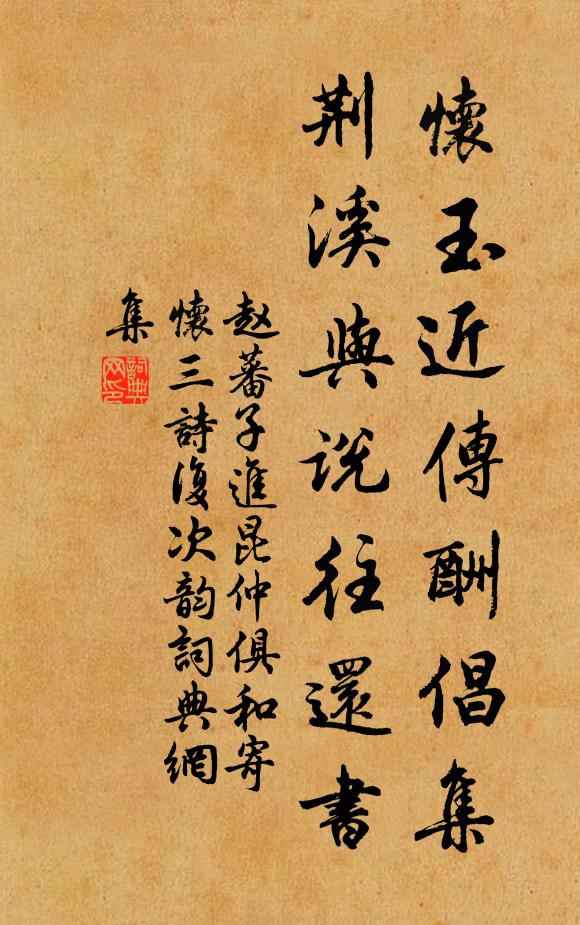 懷玉近傳酬倡集
荆溪與説往還書
赵蕃子進昆仲俱和寄
懷三詩復次韵詞典網
集
詞典
网印